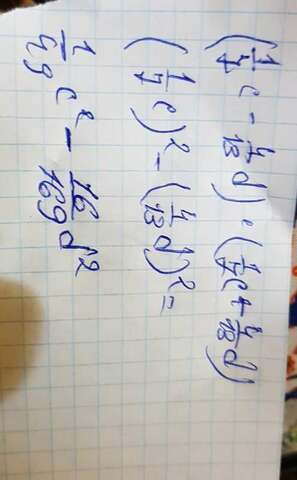 (1/7 c - 4/13 d) · (1/7 c + 4/13 d)
(1/7 c)² - (4/13 d)² =
1/49 c² - 16/169 d²